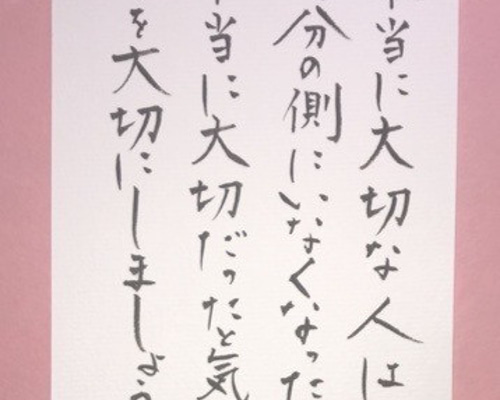 本当に大切な人は
分の側にいなくなった
本当に大切だったと気
を大切にしましょう